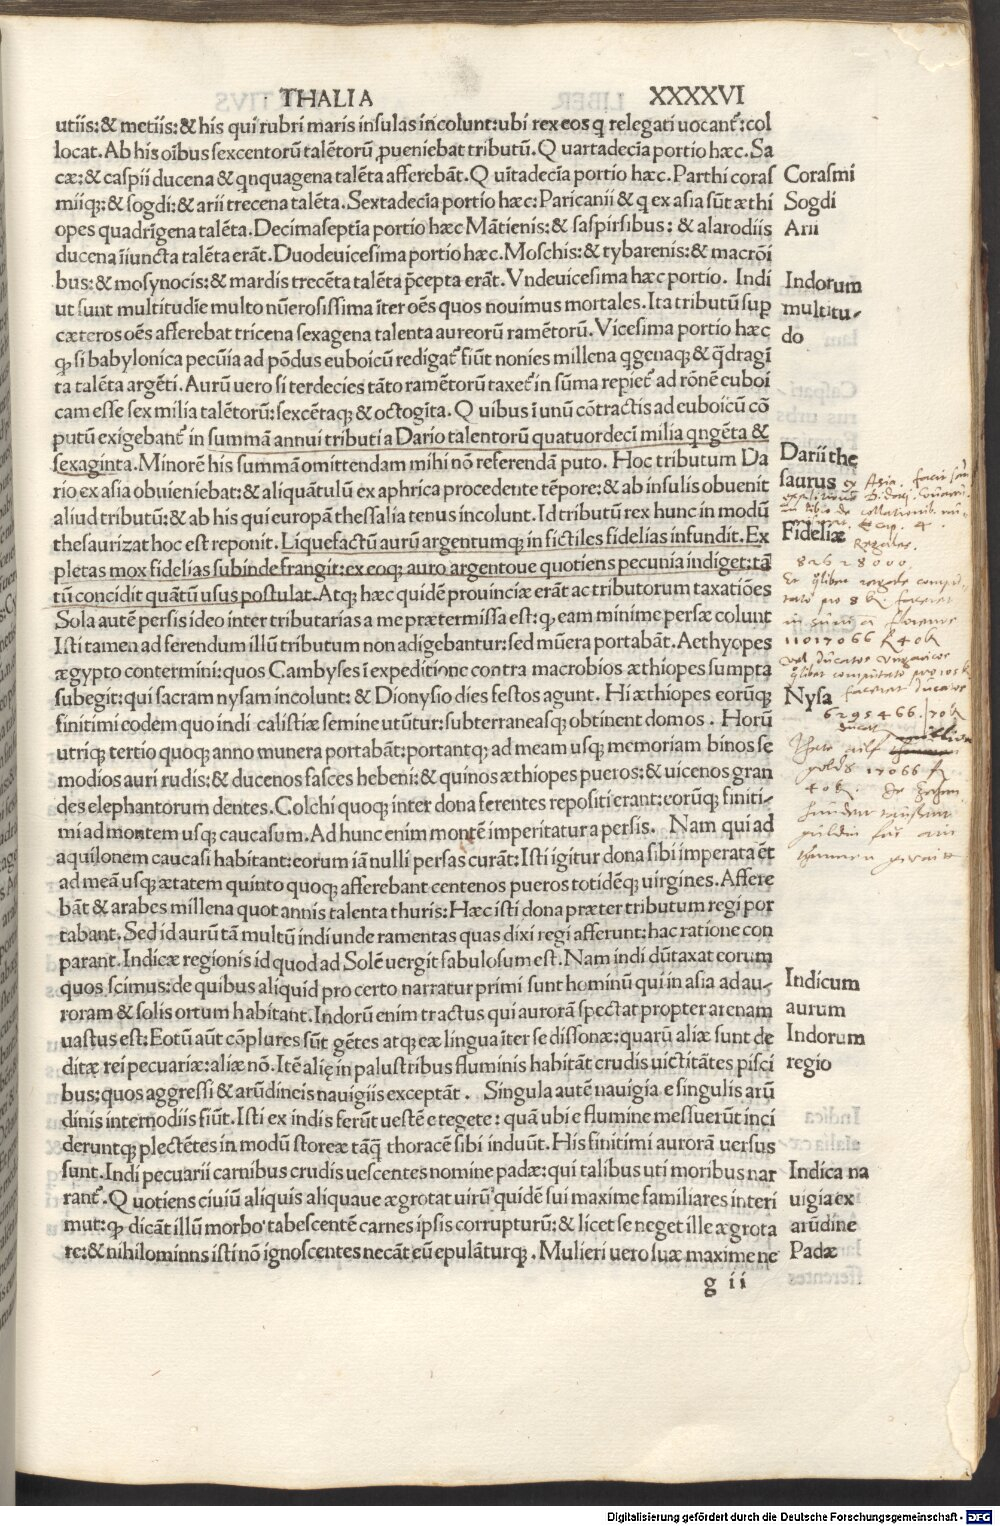 THALIA XXXXVI
utiis:& metiis:& his qui rubri maris insulas incolunt:ubi rex eos q relegati uocant᷑:col
locat. Ab his oı̃bus sexcentorū talētorū ꝓueniebat tributū. Quartadecı̃a portio hæc. Sa
cæ:& caspii ducena & qnquagena talēta afferebãt. Quı̃tadecı̃a portio hæc. Parthi coras
miiqꝫ:& sogdi:& arii trecena talēta. Sextadecı̃a portio hæc: Paricanii & q ex asia sūt æthi
opes quadrı̃gena talēta. Decimaseptı̃a portio hæc Mãtienis: & saspirsibus: & alarodiis
ducena ı̃iuncta talēta erãt. Duodeuicesima portio hæc. Moschis: & tybarenis: & macrõi
bus: & mosynocis: & mardis trecēta talēta p̄cepta erãt. Vndeuicesima hæc portio. Indi
ut sunt multitudı̃e multo nūerosissima ı̃ter oēs quos nouimus mortales. Ita tributū suꝑ
cæteros oēs afferebat tricena sexagena talenta aureorū ramētorū. Vicesima portio hæc
ꝙ si babylonica pecūia ad põdus euboicū redigat᷑ fiūt nonies millena qgenaqꝫ & q̄dragı̃
ta talēta argēti. Aurū uero si terdecies tãto ramētorū taxet᷑ in sūma repiet᷑ ad rõnē euboi
cam esse sex milia talētorū: sexcētaqꝫ & octogı̃ta. Quibus ı̃ unū cõtractis ad euboicū cõ
putū exigebant᷑ in summã annui tributi a Dario talentorū quatuordecı̃ milia qngēta &
sexaginta. Minorē his summã omittendam mihi nõ referendã puto. Hoc tributum Da
rio ex asia obuieniebat: & aliquãtulū ex aphrica procedente tēpore: & ab insulis obuenit
aliud tributū: & ab his qui europã thessalia tenus incolunt. Id tributū rex hunc in modū
thesaurizat hoc est reponit. Liquefactū aurū argentumqꝫ in fictiles fidelias infundit. Ex
pletas mox fidelias subinde frangit: ex eoqꝫ auro argentoue quotiens pecunia indiget: tã
tū concidit quãtū usus postulat. Atqꝫ hæc quidē prouinciæ erãt ac tributorum taxatiões
Sola autē persis ideo inter tributarias a me prætermissa est: ꝙ eam minime persæ colunt
Isti tamen ad ferendum illū tributum non adigebantur: sed mūera portabãt. Aethyopes
ægypto contermini: quos Cambyses ı̃ expeditione contra macrobios æthiopes sumpta
subegit: qui sacram nysam incolunt: & Dionysio dies festos agunt. Hi æthiopes eorūqꝫ
finitimi eodem quo indi calistiæ semine utūtur: subterraneasqꝫ obtinent domos. Horū
utriqꝫ tertio quoqꝫ anno munera portabãt: portantqꝫ ad meam usqꝫ memoriam binos se
modios auri rudis: & ducenos fasces hebeni: & quinos æthiopes pueros: & uicenos gran
des elephantorum dentes. Colchi quoqꝫ inter dona ferentes repositi erant: eorūqꝫ finiti-
mi ad montem usqꝫ caucasum. Ad hunc enim montē imperitatur a persis. Nam qui ad
aquilonem caucasi habitant: eorum iã nulli persas curãt: Isti igitur dona sibi imperata ēt
ad meã usqꝫ ætatem quinto quoqꝫ afferebant centenos pueros totidēqꝫ uirgines. Affere
bãt & arabes millena quot annis talenta thuris: Hæc isti dona præter tributum regi por
tabant. Sed id aurū tã multū indi unde ramentas quas dixi regi afferunt: hac ratione con
parant. Indicæ regionis id quod ad Solē uergit sabulosum est. Nam indi dūtaxat eorum
quos scimus: de quibus aliquid pro certo narratur primi sunt hominū qui in asia ad au-
roram & solis ortum habitant. Indorū enim tractus qui aurorã spectat propter arenam
uastus est: Eotū aūt cõplures sūt gētes atqꝫ eæ lingua ı̃ter se dissonæ: quarū aliæ sunt de
ditæ rei pecuariæ: aliæ nõ. Itē alię in palustribus fluminis habitãt crudis uictitãtes pisci
bus: quos aggressi & arūdineis nauigiis exceptãt. Singula autē nauigia e singulis arū
dinis internodiis fiūt. Isti ex indis ferūt uestē e tegete: quã ubi e flumine messuerūt inci
deruntqꝫ plectētes in modū storeæ tãq̃ thoracē sibi induūt. His finitimi aurorã uersus
sunt. Indi pecuarii carnibus crudis uescentes nomine padæ: qui talibus uti moribus nar
rant᷑. Quotiens ciuiū aliquis aliquaue ægrotat uirū quidē sui maxime familiares interi
mut: ꝙ dicãt illū morbo tabescentē carnes ipsis corrupturū: & licet se neget ille ægrota
re: & nihilominns isti nõ ignoscentes necãt eū epulãturqꝫ. Mulieri uero suæ maxime ne
g ii
Corasmi
Sogdi
Arii
Indorum
multitu-
do
Darii the
saurus
Fideliæ
82628000
Nysa
Indicum
aurum
Indorum
regio
Indica na
uigia ex
arūdine
Padæ
Digitalisierung gefördert durch die Deutsche Forschungsgemeinschaft - DFG